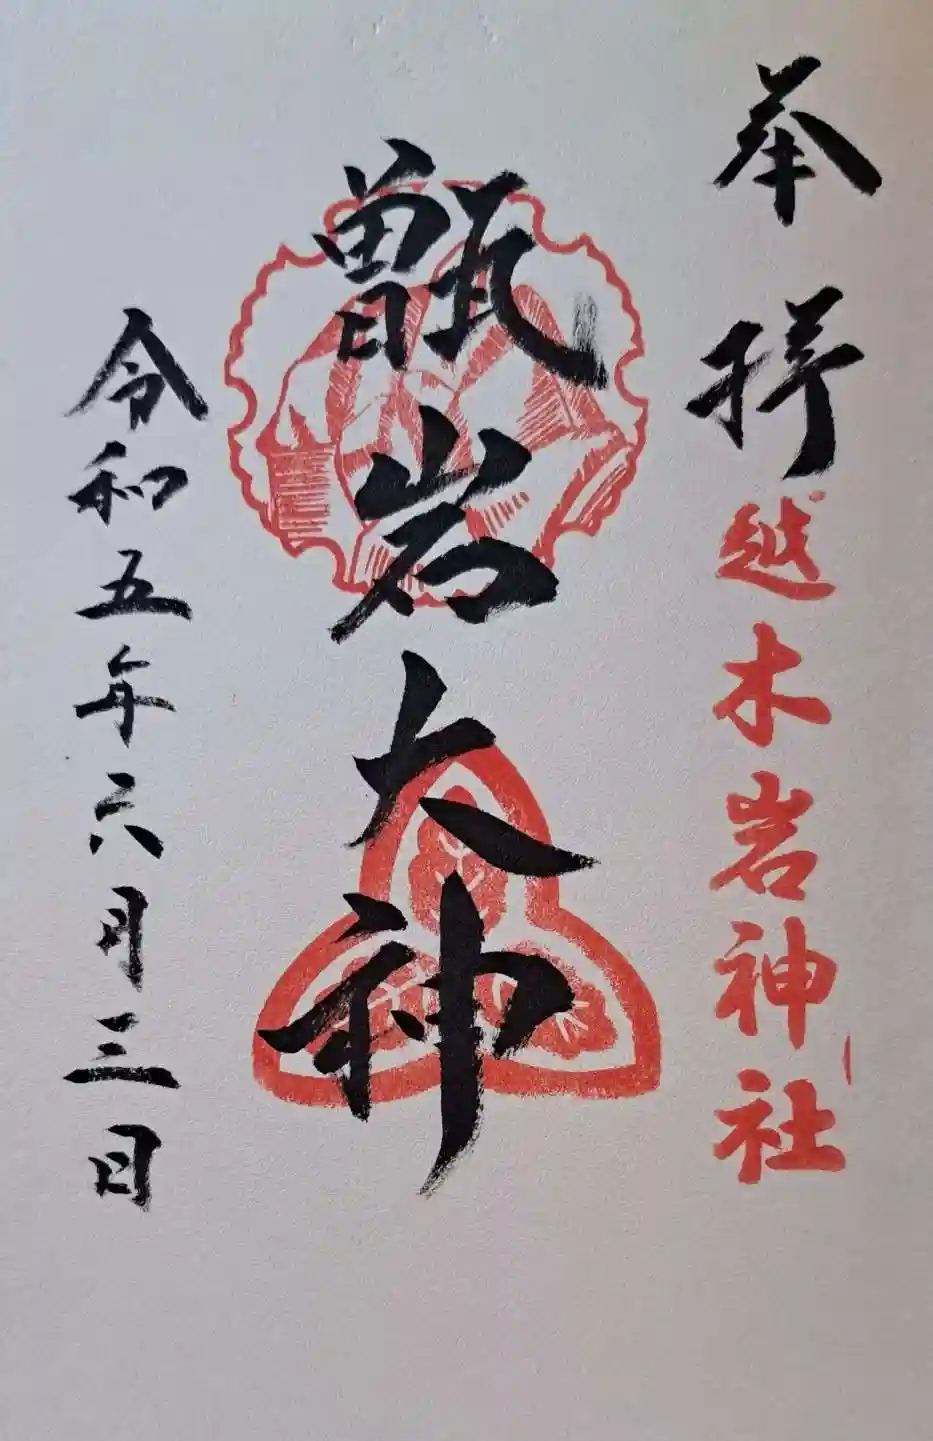 奉拝
越木岩神社
甑岩大神
令和五年六月三日